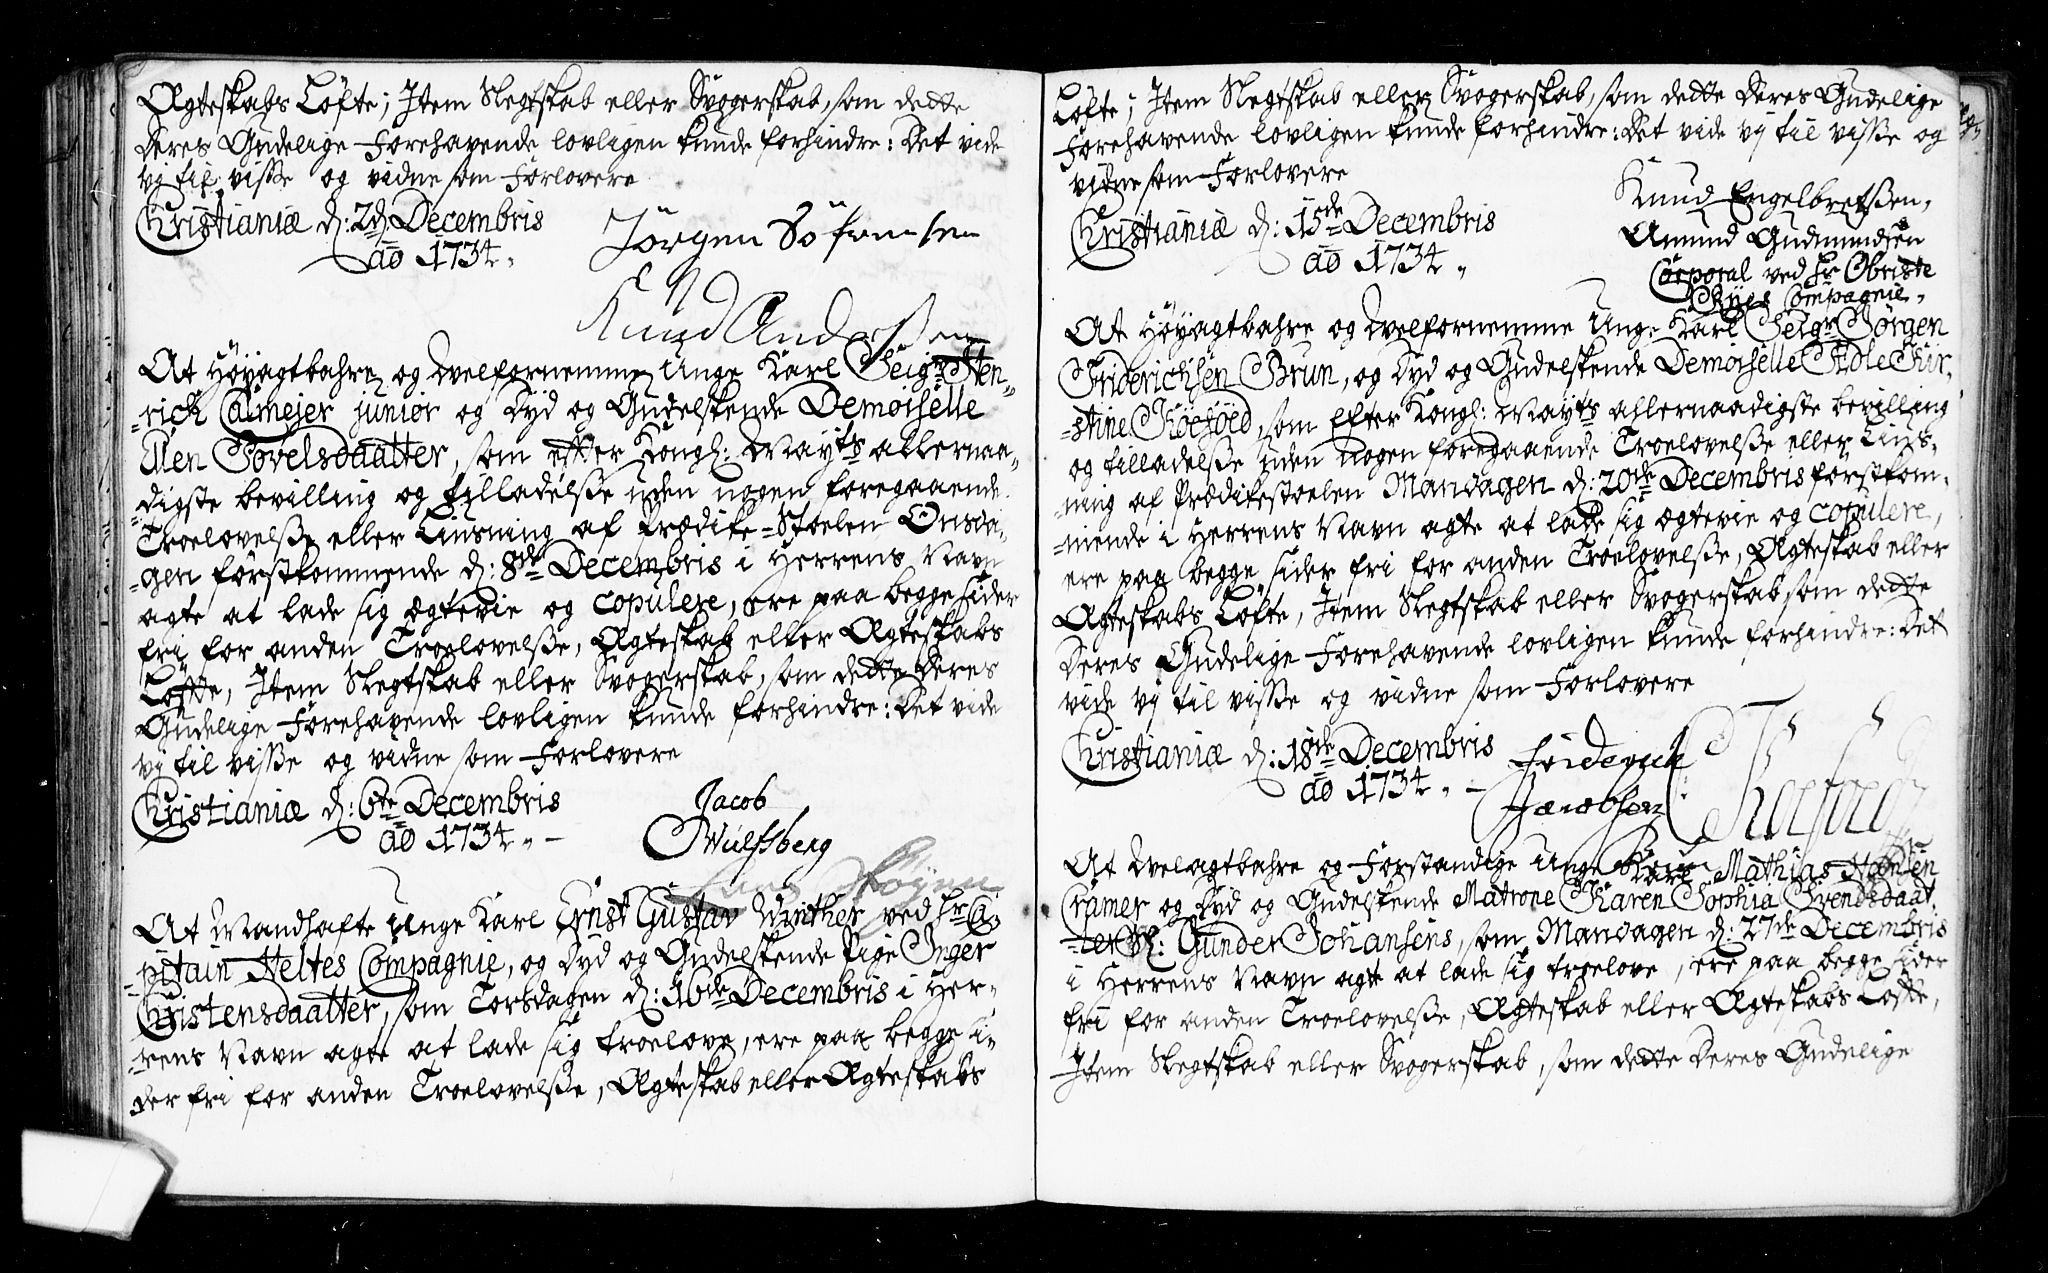 Ægteskabs Løfte; Item Slegtskab eller Svogerskab, som dette
deres Gudelige Forehavende lovligen kunde forhindre: Det vide
vj til visse og vidne som Forlovere
Christianiæ d: 2d. Decembris
aō 1734.
Jörgen Söfrensen
Knud Anderssen
At Höyagtbahre og Velfornemme Unge Karl Seigr Hen-
-rich Calmejer junior og Dyd og Gudelskende Demoiselle
Elen Povelsdaatter, som efter Kongl: Mayts allernaa-
-digste bevilling og tilladelsse uden nogen foregaaende
Troelovelsse eller Liusning af Prædike-Stoelen Onsda-
-gen förstkommende d: 8de Decembris i Herrens Navn
agte at lade sig ægtevie og copulere, ere paa begge sider
fri for anden Troelovelsse, Ægteskab eller Ægteskabs
Löfte, Item Slegtskab eller Svogerskab, som dette deres
Gudelige Forehavende lovligen kunde forhindre: Det vide
vj til visse og vidne som Forlovere
Christianiæ d: 6te Decembris
aō 1734. —
Jacob
Wulfsberg
At Mandhafte Unge Karl Ernst Gustav Winther ved Hr Ca-
-pitain Heltes Compagnie, og Dyd og Gudelskende Pige Inger
Christensdaatter, som Torsdagen d: 16de Decembris i Her-
-rens Navn agte at lade sig troelove, ere paa begge si-
der fri for anden Troelovelsse, Ægteskab eller Ægteskabs
Löfte; Item Slegtskab eller Svogerskab, som dette deres Gudelige
Forehavende lovligen kunde forhindre: Det vide vj til visse og
vidne som Forlovere
Christianiæ d: 15de Decembris
aō 1734.
Knud Engelbretssen,
Amund Gudmundsen
Corporal ved Hr Obriste
Compagnie.
At Höyagtbahre og Velfornemme Unge Karl Seigr Jörgen
Friderichsen Brun, og Dyd og Gudelskende Demoiselle Adle Kir-
-stine Koefoed, som efter Kongl: Mayts allernaadigste bevilling
og tilladelsse uden nogen foregaaende Troelovelsse eller Lius-
-ning af Prædikestoelen Mandagen d: 20de Decembris förstkom-
-mende i Herrens Navn agte at lade sig ægtevie og copulere,
ere paa begge sider fri for anden Troelovelsse, Ægteskab eller
Ægteskabs Löfte, Item Slegtskab eller Svogerskab som dette
deres Gudelige Forehavende lovligen kunde forhindre: Det
vide vj til visse og vidne som Forlovere
Christianiæ d: 18de Decembris
aō 1734. —
Friderich
Jacobsen
Koefoed
At Velagtbahre og Forstandige Unge Karl Mathias Hansen
Cramer og Dyd og Gudelskende Matrone Karen Sophia Svendsdaat-
-ter Sl: Gunder Johansens, som Mandagen d: 27de Decembris
i Herrens Navn agte at lade sig troelove, ere paa begge sider
fri for anden Troelovelsse, Ægteskab eller Ægteskabs Löfte,
Item Slegtskab eller Svogerskab, som dette deres Gudelige